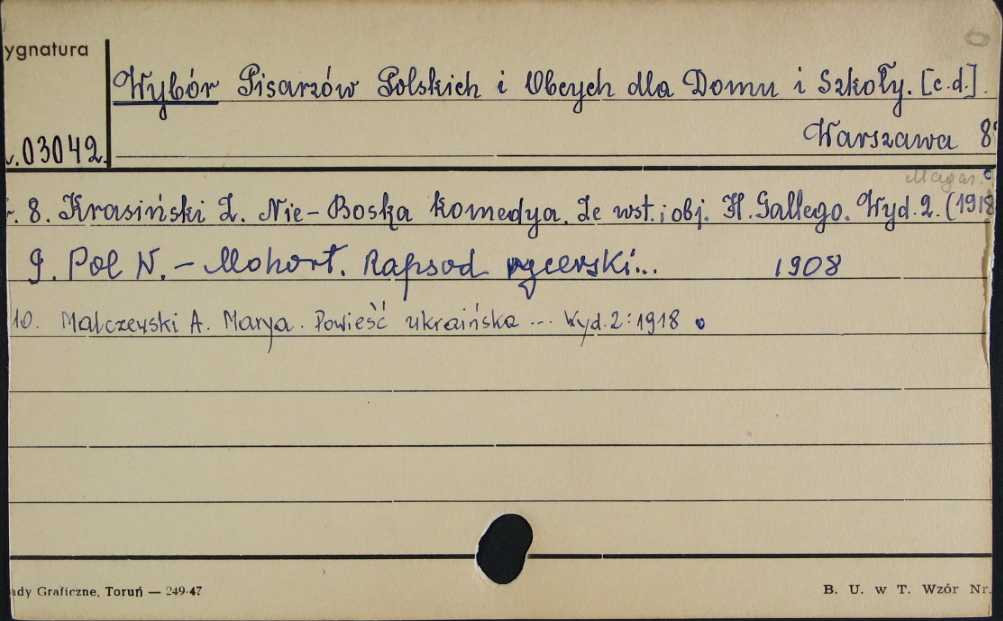 ygnatura
Wybór Pisarzów Polskich i Obcych dla Domu i Szkoły. [c.d.].
Warszawa 8°
.03042.
Magaz.
. 8. Krasiński Z. Nie-Boska komedya. Ze wst. i obj. H. Gallego. Wyd. 2. (1918
9. Pol W. - Mohort. Rapsod rycerski... 1908
10. Malczewski A. Marya. Powieść ukraińska ... Wyd. 2: 1918
ady Graficzne, Toruń — 249-47
B. U. w T. Wzór Nr.